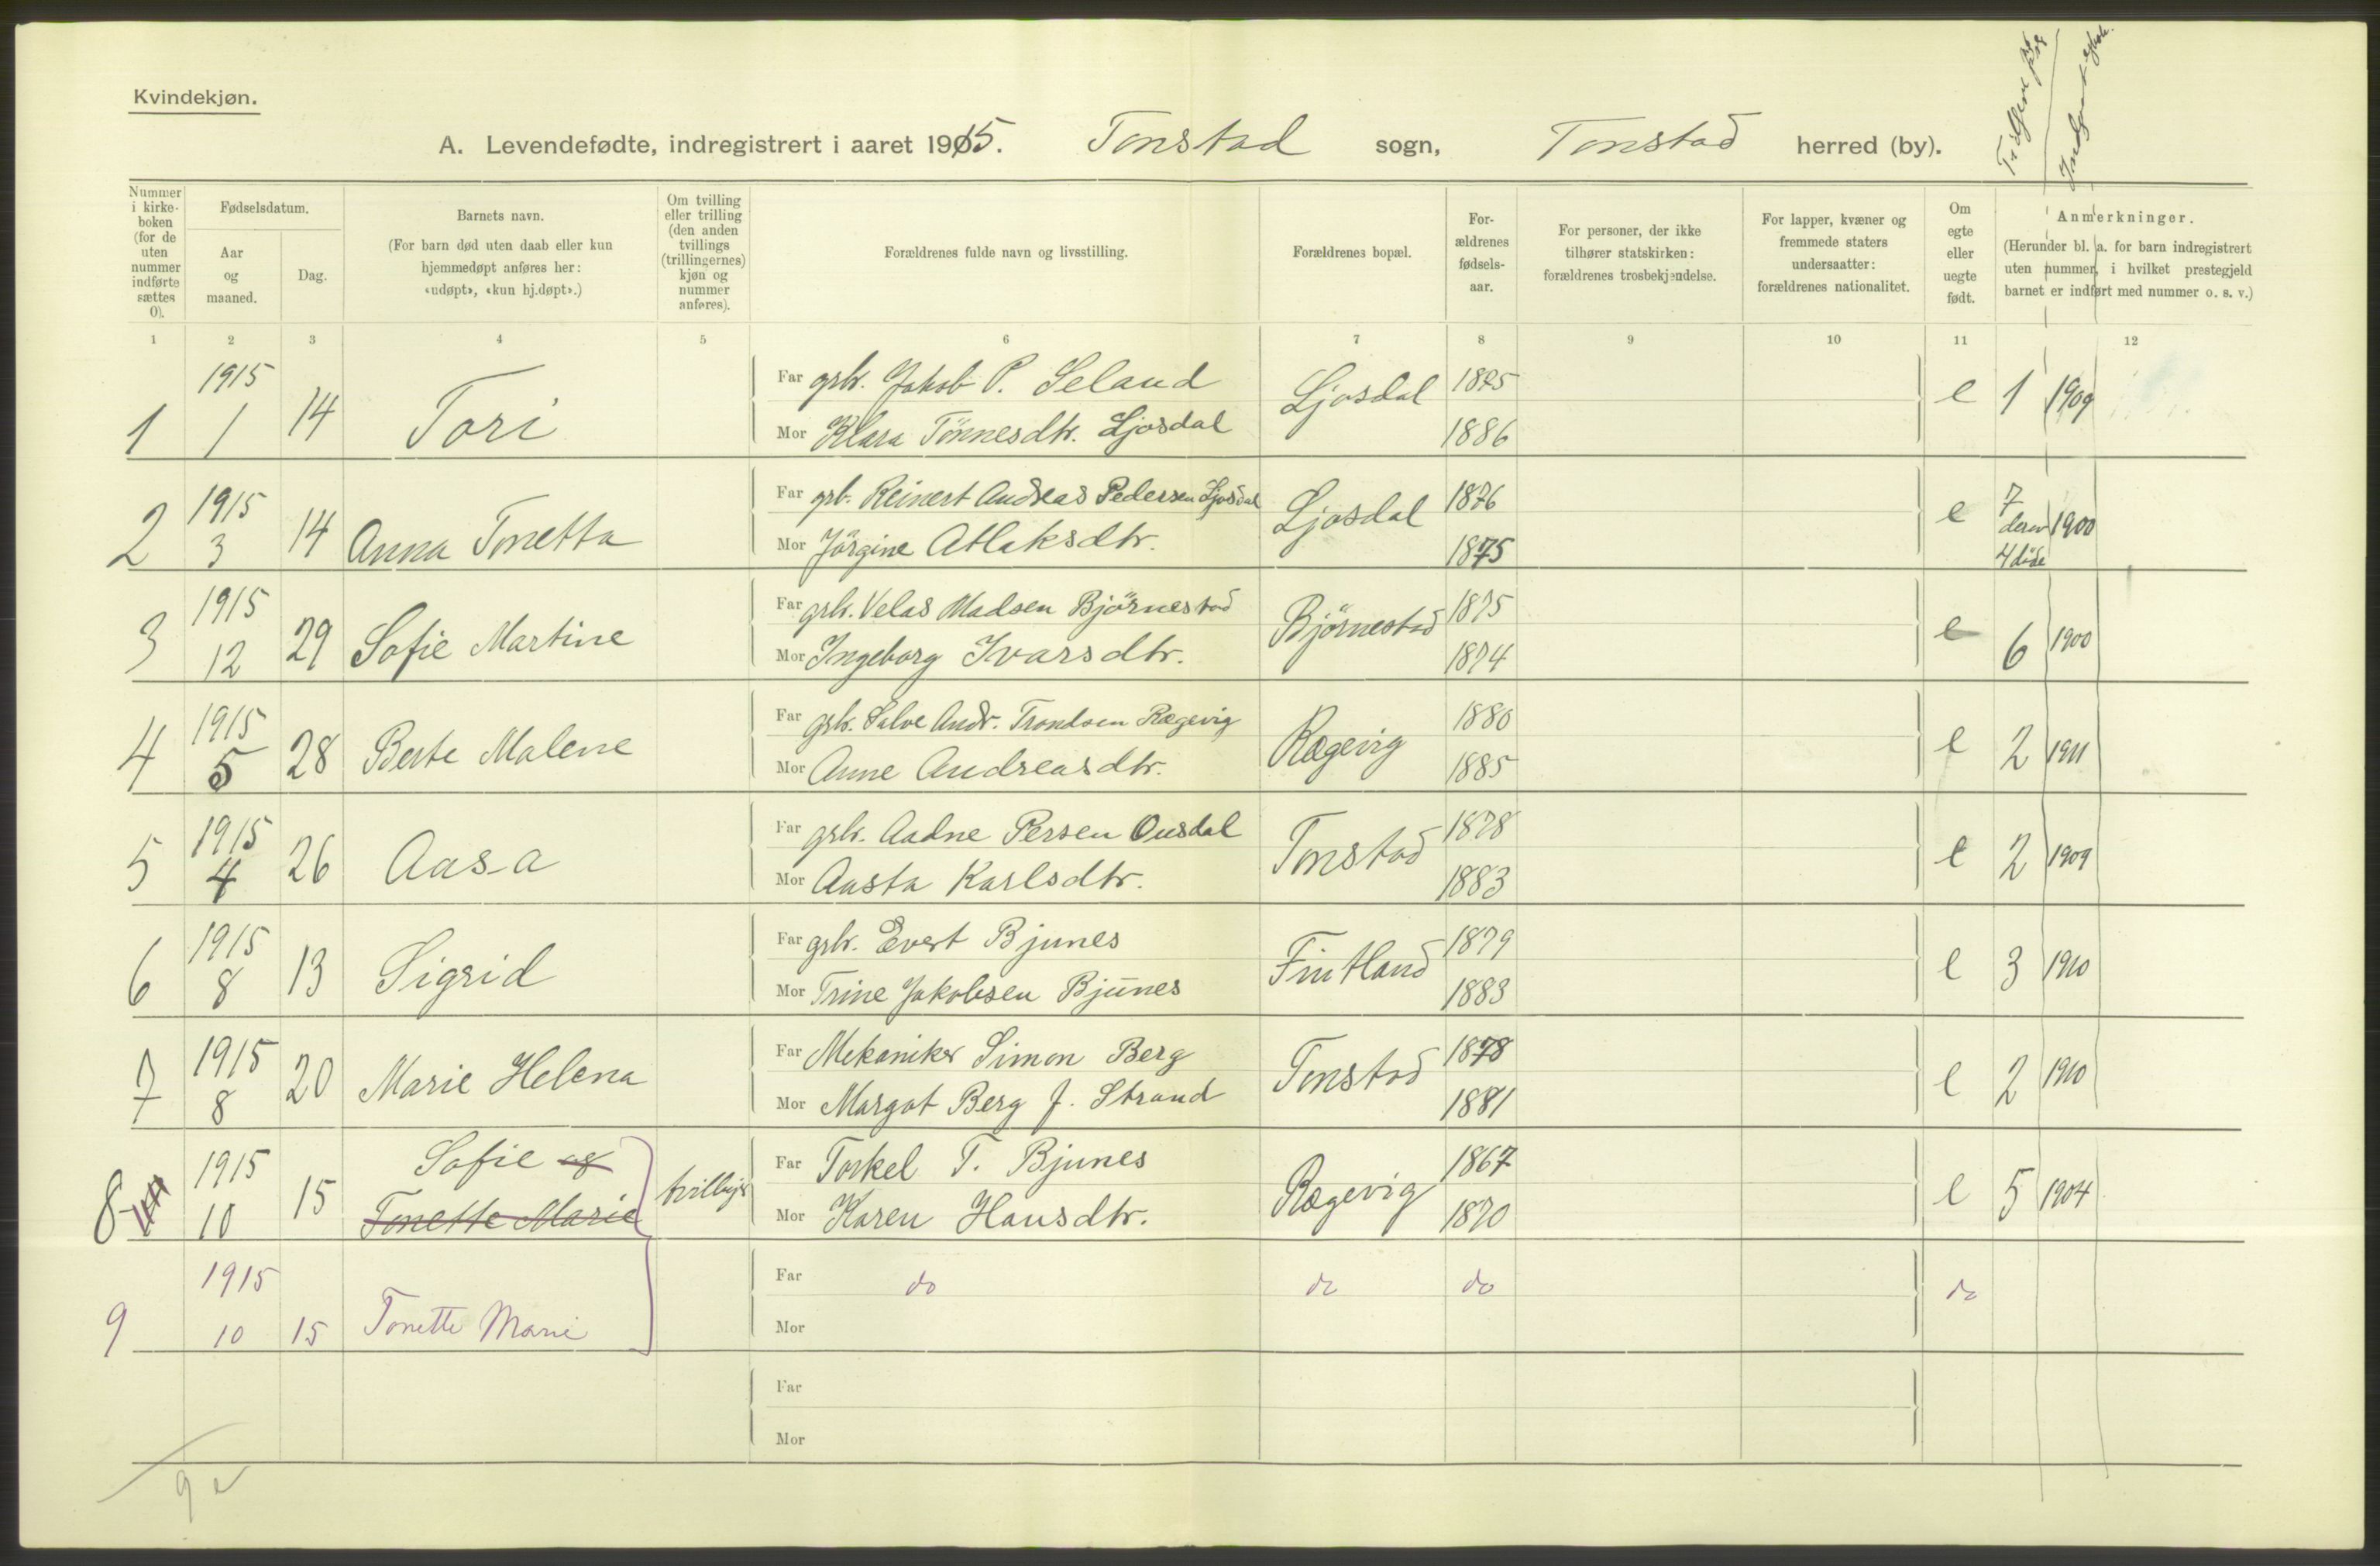 Kvindekjøn.
A. Levendefødte, indregistrert i aaret 1915. Tonstad sogn, Tonstad herred (by).
Nummer i kirke-boken (for de uten nummer indførte sættes 0).
Fødselsdatum.
Aar og maaned.
Dag.
Barnets navn.
(For barn død uten daab eller kun hjemmedøpt anføres her: «udøpt», «kun hj.døpt».)
Om tvilling eller trilling (den anden tvillings (trillingernes) kjøn og nummer anføres).
Forældrenes fulde navn og livsstilling.
Forældrenes bopæl.
For-ældrenes fødsels-aar.
For personer, der ikke tilhører statskirken: forældrenes trosbekjendelse.
For lapper, kvæner og fremmede staters undersaatter: forældrenes nationalitet.
Om egte eller uegte født.
Anmerkninger.
(Herunder bl. a. for barn indregistrert uten nummer, i hvilket prestegjeld barnet er indført med nummer o. s. v.)
1 2 3 4 5 6 7 8 9 10 11 12
1 1915 1 14 Tori Far grbr. Jakob P. Seland Ljosdal 1885 e 1 1909
Mor Klara Tönnesdtr. Ljosdal 1886
2 1915 3 14 Anna Tonetta Far grb. Reinert Andreas Pedersen Ljosdal Ljosdal 1876 e 7 derav 4 döde 1900
Mor Jörgine Atlaksdtr. 1875
3 1915 12 29 Sofie Martine Far grbr. Velas Madsen Björnestad Björnestad 1875 e 6 1900
Mor Ingeborg Ivarsdtr. 1874
4 1915 5 28 Berte Malene Far grbr. Salve Andr. Trondsen Rægevig Rægevig 1880 e 2 1911
Mor Anne Andreasdtr. 1885
5 1915 4 26 Aasa Far grbr. Aadne Persen Ousdal Tonstad 1878 e 2 1909
Mor Aasta Karlsdtr. 1883
6 1915 8 13 Sigrid Far grbr. Evert Bjunes Fintland 1879 e 3 1910
Mor Trine Jakobsen Bjunes 1883
7 1915 8 20 Marie Helena Far Mekaniker Simon Berg Tonstad 1878 e 2 1910
Mor Margot Berg f. Strand 1881
8 1915 10 15 Sofie og Tonette Marie tvillinger Far Torkel T. Bjunes Rægevig 1867 e 5 1904
Mor Karen Hansdtr. 1870
9 1915 10 15 Tonette Marie Far do do do do
Mor
Far
Mor
9